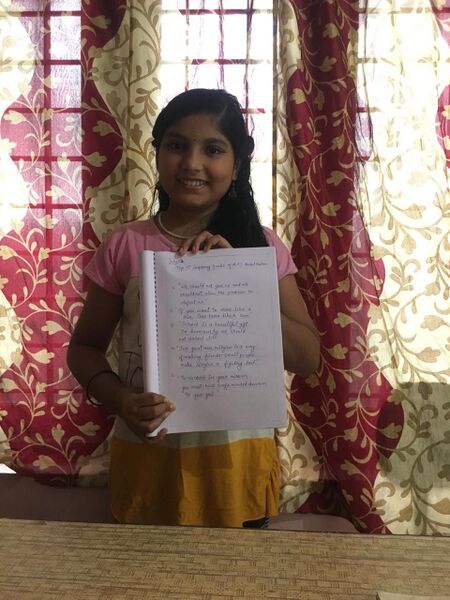 Top 10 inspiring quotes of A.P.J Abdul Kalam
"We should not give up and we
should not allow the problem to
defeat us"
If you want to shine like a
sun, first burn like a sun
Science is a beautiful gift
to humanity we should
not distort it"
"For great men, religion is a way
of making friends small people
make religion a fighting tool"
"To succeed in your mission,
you must have single minded devotion
to your goal"